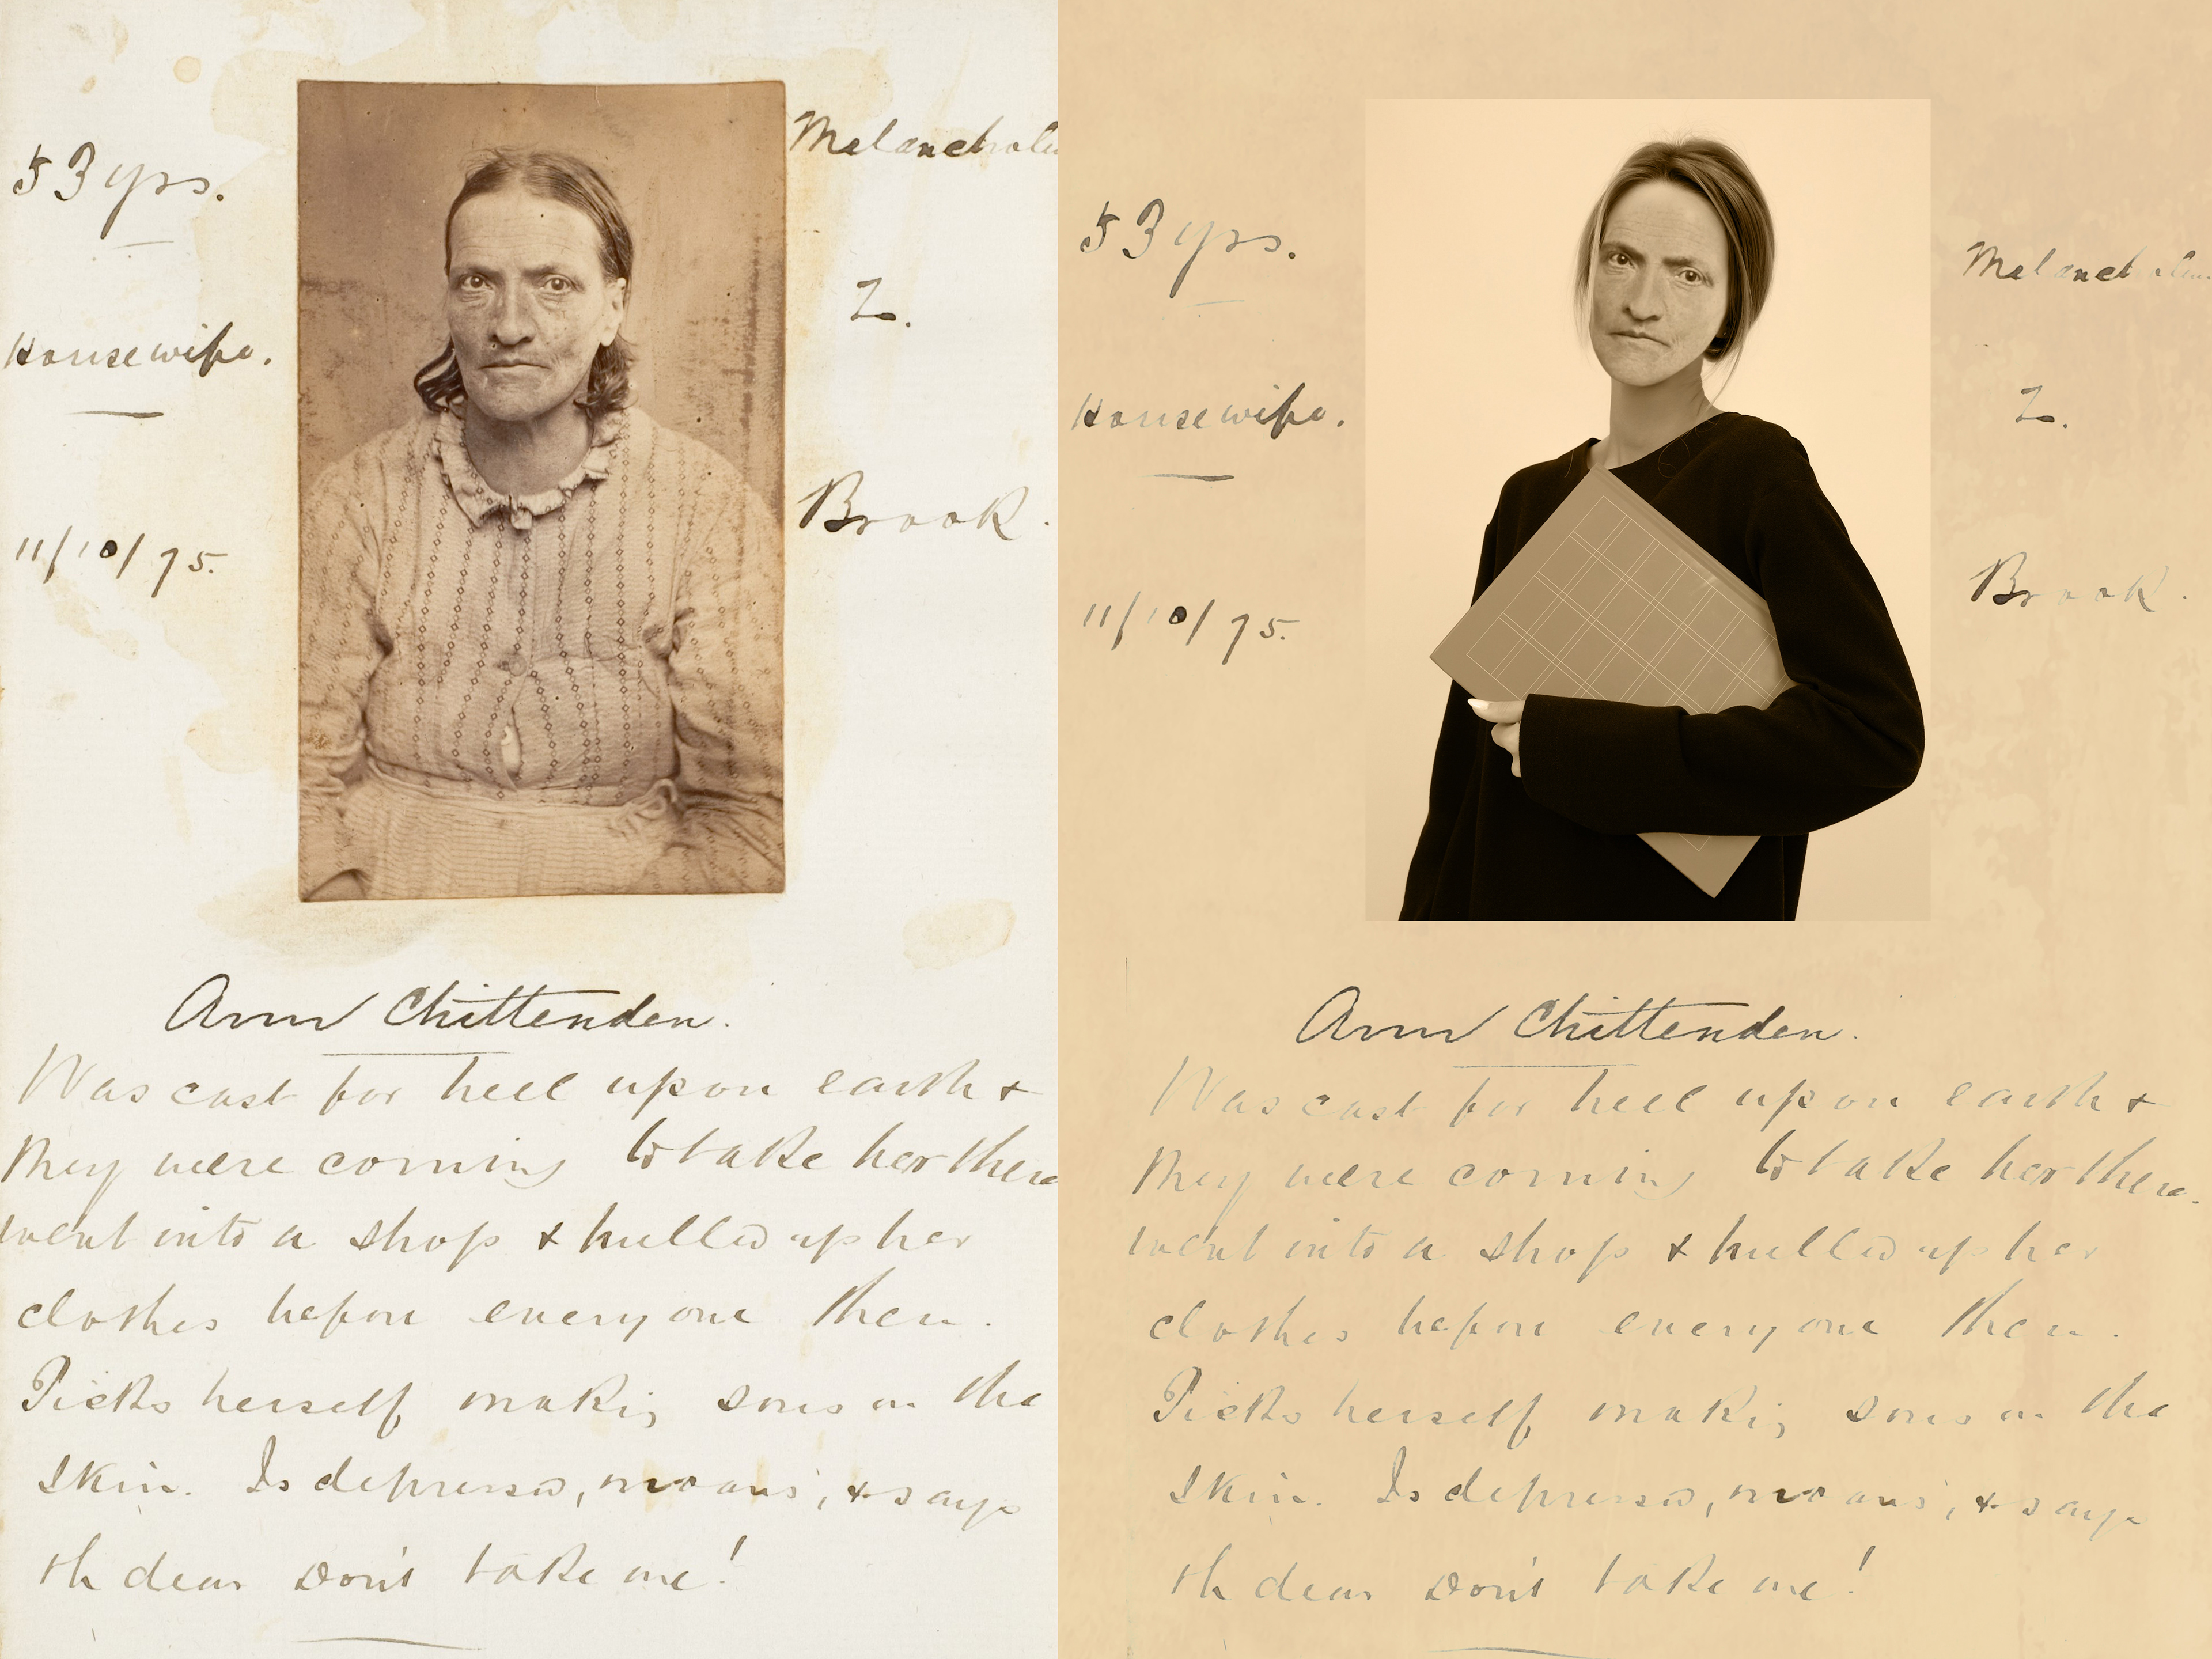 53 yrs.
Housewife.
11/10/75.
Melancholia
2.
Brook.
Ann Chittenden.
Was cast for hell upon earth &
they were coming to take her there
went into a shop & pulled up her
clothes before everyone there.
Picks herself making sores on the
skin. Is depressed, moans, & says
Oh dear Don't take me!
53 yrs.
Housewife.
11/10/75.
Melancholia
2.
Brook.
Ann Chittenden.
Was cast for hell upon earth &
they were coming to take her there.
went into a shop & pulled up her
clothes before everyone there.
Picks herself making sores on the
skin. Is depressed, moans, & says
Oh dear Don't take me!